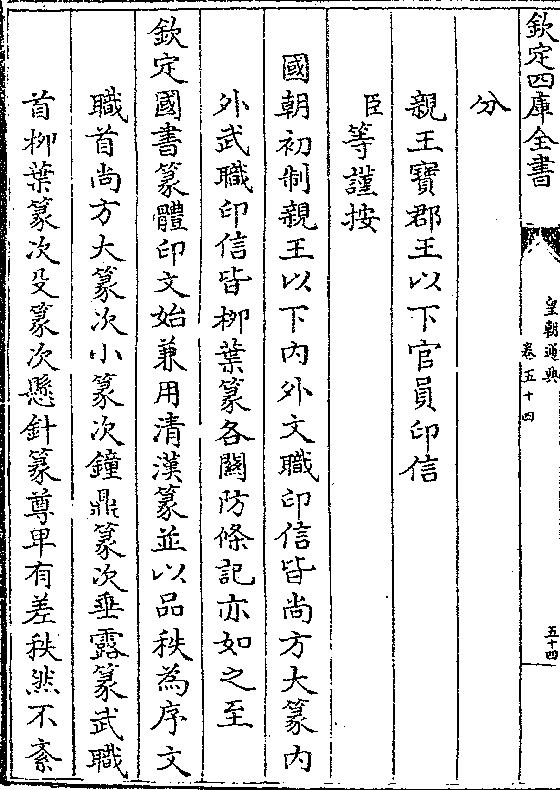 欽定四庫全書
皇朝通典
卷五十四
五十四
分
親王寶郡王以下官員印信
臣等謹按
國朝初制親王以下內外文職印信皆尚方大篆內
外武職印信皆栁葉篆各關防條記亦如之至
欽定國書篆體印文始兼用清漢篆並以品秩為序文
職首尚方大篆次小篆次鐘鼎篆次垂露篆武職
首栁葉篆次殳篆次懸針篆尊卑有差秩然不紊